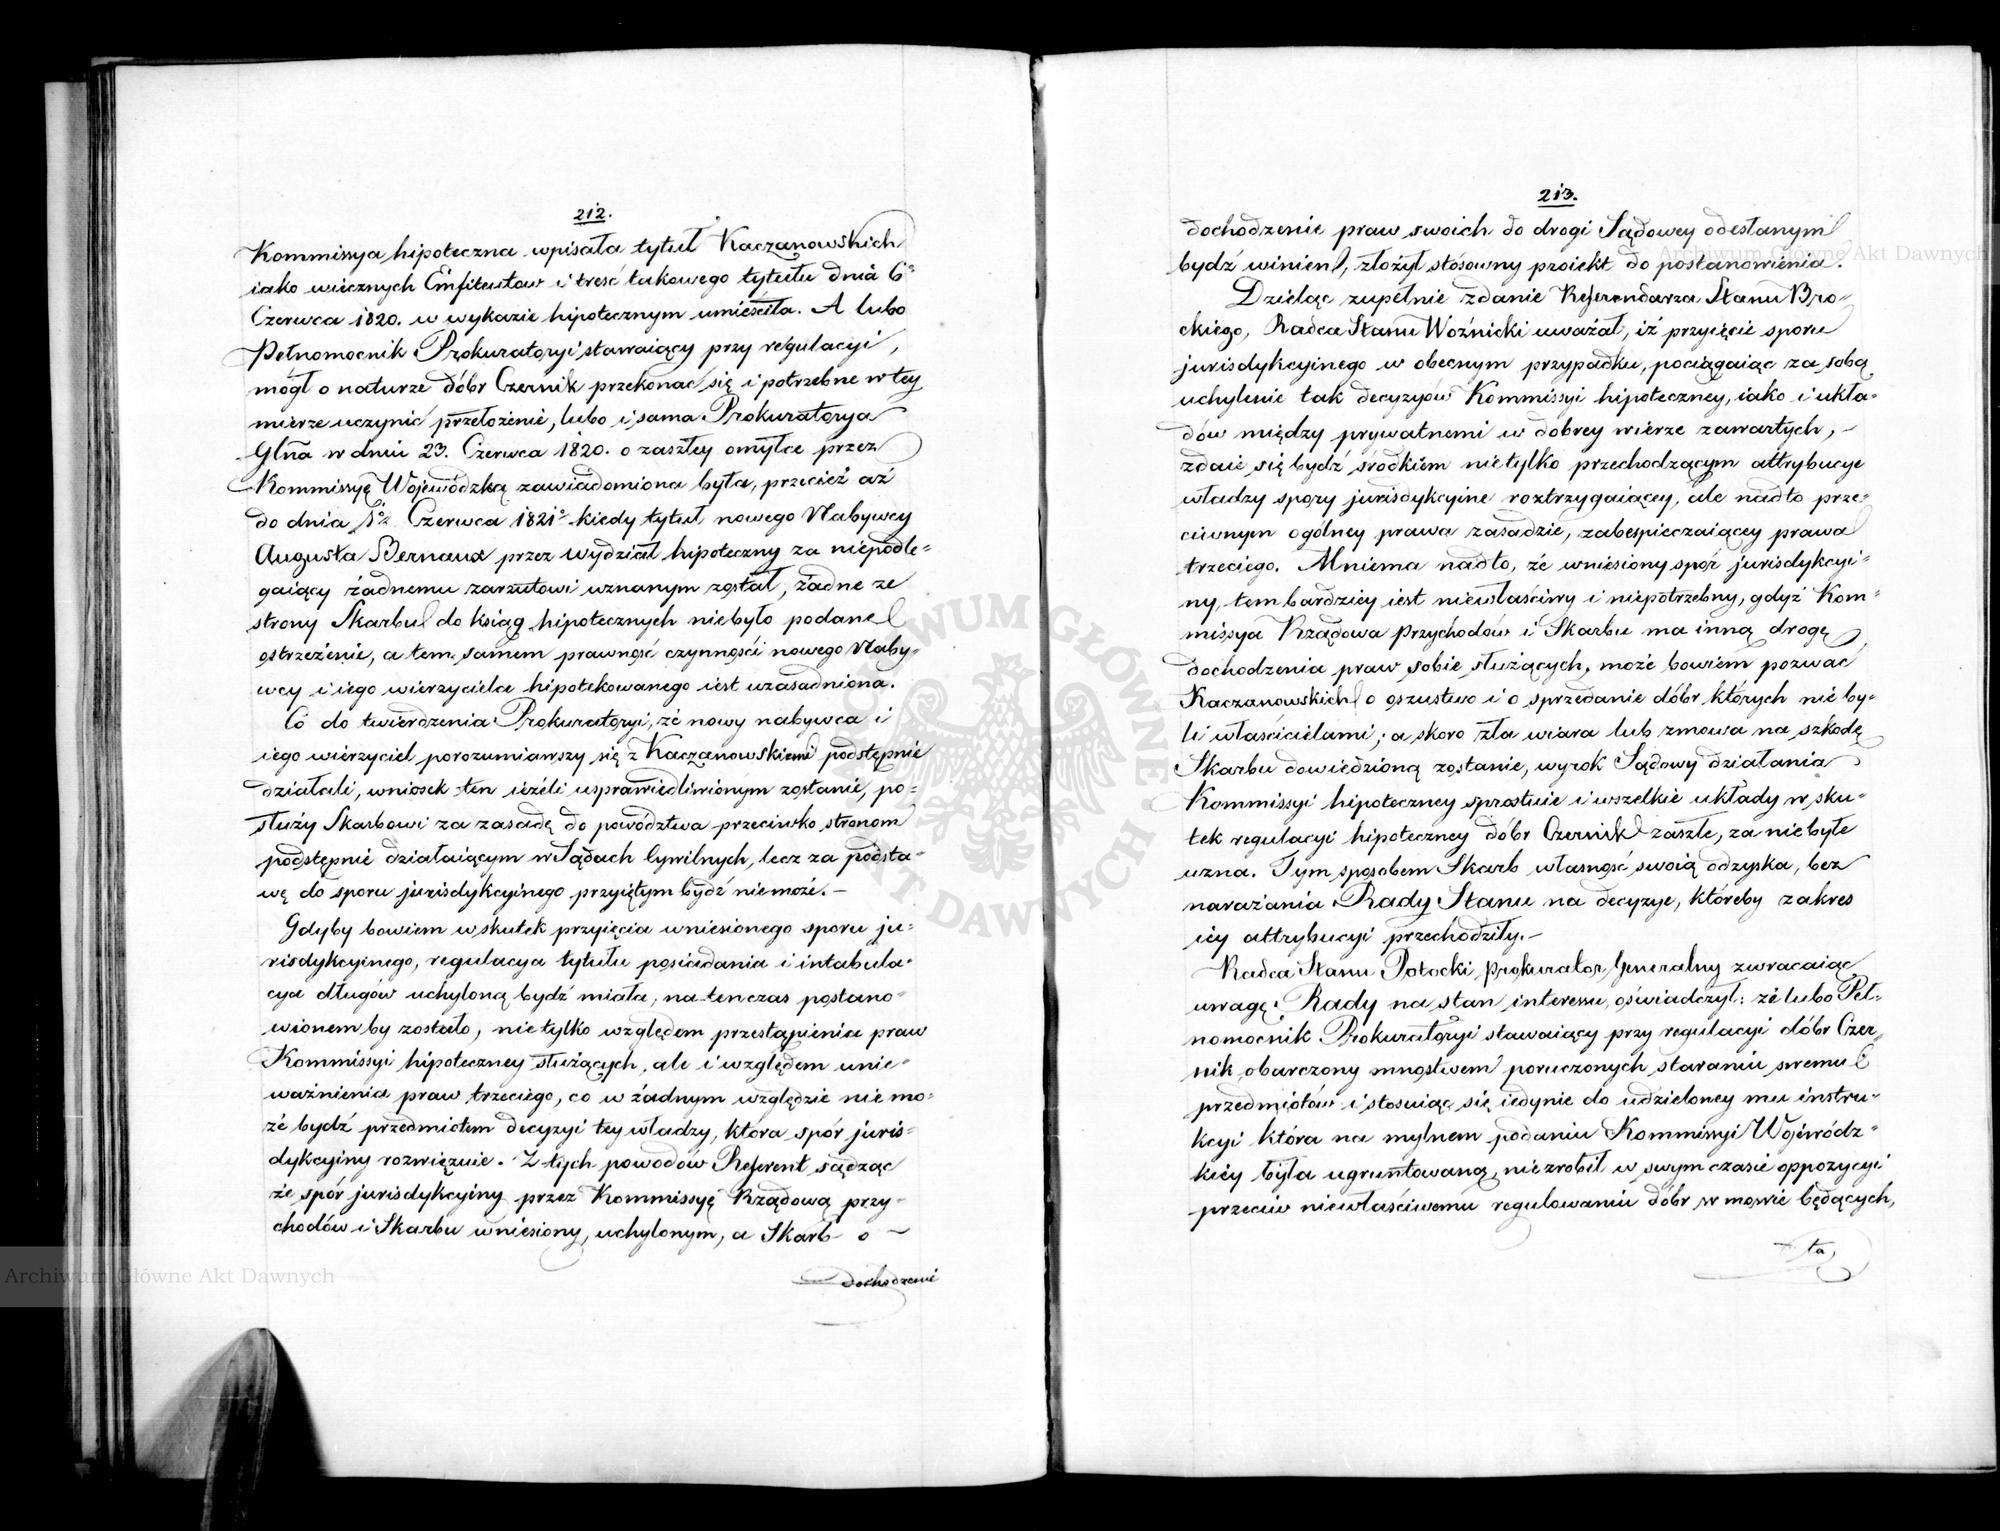 212.
Kommissya hipoteczna wpisała tytuł Kaczanowskich
iako wiecznych Emfiteutow i treść takowego tytułu dnia 6º
Czerwca 1820. w wykazie hipotecznym umieściła. A lubo
Pełnomocnik Prokuratoryi stawaiący przy regulacyi,
mógł o naturze dóbr Czernik przekonać się i potrzebne w tey
mierze uczynić przełożenie, lubo i sama Prokuratorya
Glña w dniu 23. Czerwca 1820. o zaszłey omyłce przez
Kommissyę Wojewódzką zawiadomiona była, przecież aż
do dnia Czerwca 1821º kiedy tytuł nowego Nabywcy
Augusta Bernaux przez wydział hipoteczny za niepodle-
gaiący żadnemu zarzutowi uznanym został, żadne ze
strony Skarbu do ksiąg hipotecznych niebyło podane
ostrzeżenie, a tem samem prawność czynności nowego Naby-
wcy i iego wierzyciela hipotekowanego iest uzasadniona.
Co do twierdzenia Prokuratoryi, że nowy nabywca i
iego wierzyciel porozumiawszy się z Kaczanowskiemi podstępnie
działali, wniosek ten ieżeli usprawiedliwionym zostanie, po-
służy Skarbowi za zasadę do powództwa przeciwko stronom
podstępnie działaiącym w Sądach Cywilnych, lecz za podsta-
wę do sporu jurisdykcyinego przyiętym bydź niemoże. –
Gdyby bowiem w skutek przyięcia wniesionego sporu ju-
risdykcyinego, regulacya tytułu posiadania i intabula-
cya długów uchyloną bydź miała, na ten czas postano-
wionem by zostało, nie tylko względem przestąpienia praw
Kommissyi hipoteczney służących, ale i względem unie-
ważnienia praw trzeciego, co w żadnym względzie nie mo-
że bydź przedmiotem decyzyi tey władzy, ktora spór juris-
dykcyiny rozwięzuie. Z tych powodów Referent sądząc
że spór jurisdykcyiny przez Kommissyę Rządową przy-
chodów i Skarbu wniesiony, uchylonym, a Skarb o –
dochodzenie
213.
dochodzenie praw swoich do drogi Sądowey odesłanym
bydź winien, złożył stósowny proiekt do postanowienia.
Dzieląc zupełnie zdanie Referendarza Stanu Bro-
ckiego, Radca Stanu Woźnicki uważał, iż przyięcie sporu
jurisdykcyinego w obecnym przypadku, pociągaiąc za sobą
uchylenie tak decyzyów Kommissyi hipoteczney, iako i ukła-
dów między prywatnemi w dobrey wierze zawartych, –
zdaie się bydź środkiem nietylko przechodzącym attrybucye
władzy spory jurisdykcyine roztrzygaiącey, ale nadto prze-
ciwnym ogólney prawa zasadzie, zabespieczaiącey prawa
trzeciego. Mniema nadto, że wniesiony spór jurisdykcyi-
ny, tem bardziey iest niewłaściwy i niepotrzebny, gdyż Kom-
missya Rządowa Przychodów i Skarbu ma inną drogę
dochodzenia praw sobie służących, może bowiem pozwać
Kaczanowskich o oszustwo i o sprzedanie dóbr których nie by-
li właścicielami; a skoro zła wiara lub zmowa na szkodę
Skarbu dowiedzioną zostanie, wyrok Sądowy działania
Kommissyi hipoteczney sprostuie i wszelkie układy w sku-
tek regulacyi hipoteczney dóbr Czernik zaszłe, za niebyłe
uzna. Tym sposobem Skarb własność swoią odzyska, bez
narażania Rady Stanu na decyzye, któreby zakres
iey attrybucyi przechodziły. –
Radca Stanu Potocki Prokurator Generalny zwracaiąc
uwagę Rady na stan interessu, oświadczył: że lubo Peł-
nomocnik Prokuratoryi stawaiący przy regulacyi dóbr Czer-
nik, obarczony mnóstwem poruczonych staraniu swemu
przedmiotów i stosuiąc się iedynie do udzieloney mu instru-
kcyi która na mylnem podaniu Kommissyi Wojewódz-
kiey była ugruntowaną, niezrobił w swym czasie oppozycyi
przeciw niewłaściwemu regulowaniu dóbr w mowie będących,
ta,
ARCHIWUM GŁÓWNE AKT DAWNYCH
Archiwum Główne Akt Dawnych
Archiwum Główne Akt Dawnych